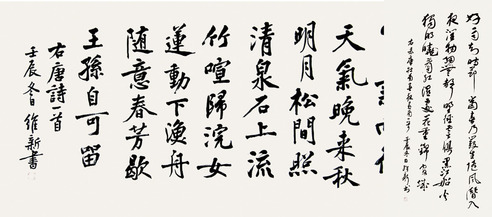 好雨知时节當春乃發生隨風潛入
夜潤物細無聲野徑雲俱黑江船火
獨明曉看紅濕處花重錦官城
天氣晚来秋
明月松間照
清泉石上流
竹喧歸浣女
蓮動下漁舟
随意春芳歇
王孫自可留
右唐詩首
壬辰冬日維新書